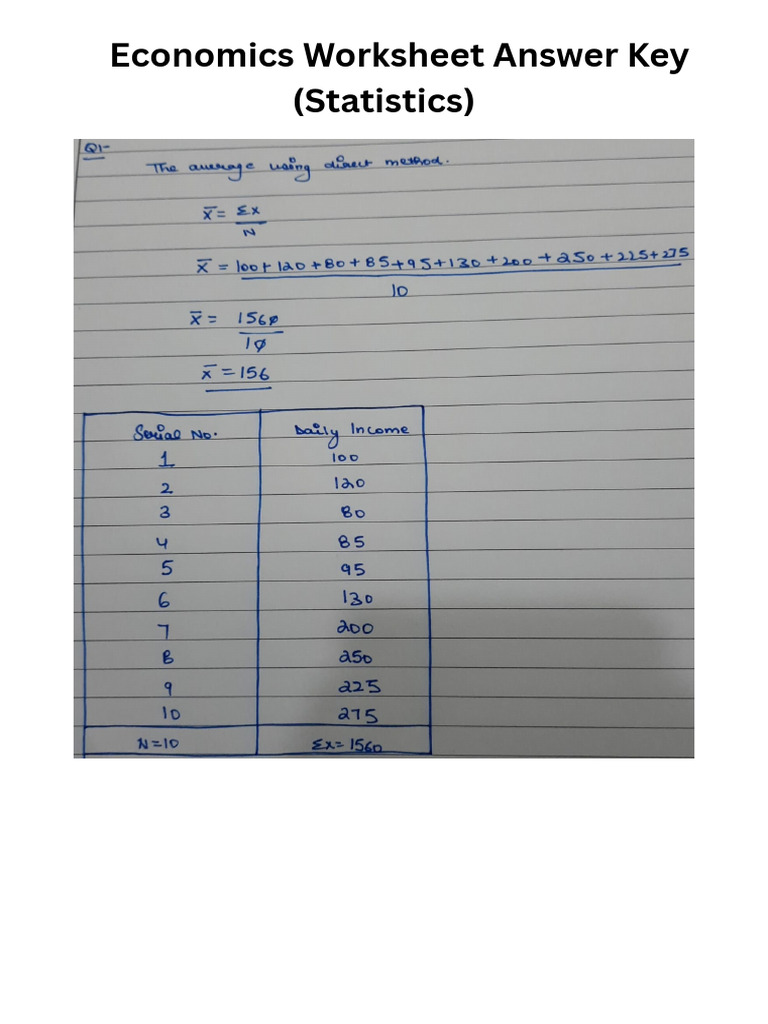 Economics Worksheet Answer Key
(Statistics)
Q1-
The average using direct method.
x̄ = Σx
N
x̄ = 100+120+80+85+95+130+200+250+225+275
10
x̄ = 1560
10
x̄ = 156
Serial No. Daily Income
1 100
2 120
3 80
4 85
5 95
6 130
7 200
8 250
9 225
10 275
N=10 Σx=1560